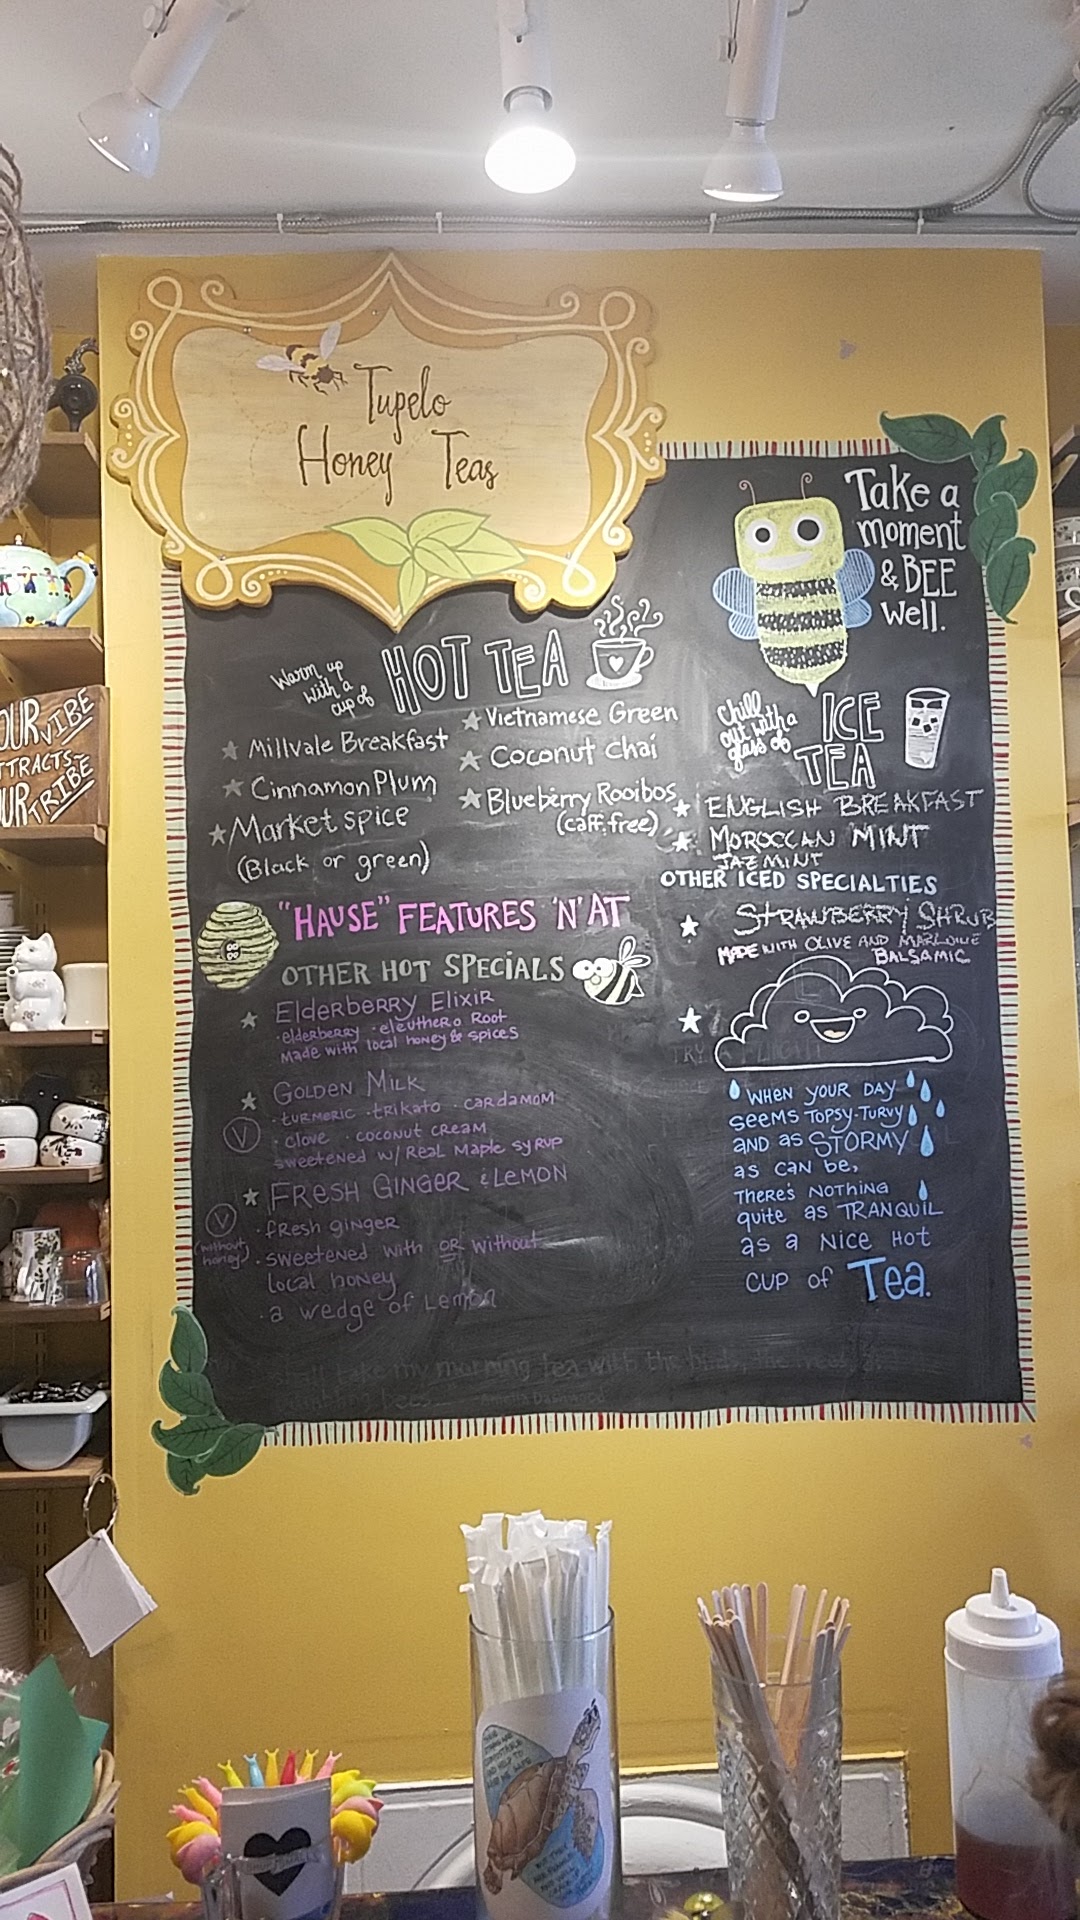 Tupelo
Honey Teas
Take a
moment
& BEE
well.
OUR VIBE
ATTRACTS
OUR TRIBE
Warm up
with a
cup of
HOT TEA
Millvale Breakfast
Cinnamon Plum
Market spice
(Black or green)
Vietnamese Green
Coconut chai
Blueberry Rooibos
(caff. free)
Chill
out with a
glass of
ICE
TEA
ENGLISH BREAKFAST
MOROCCAN MINT
JAZMINT
OTHER ICED SPECIALTIES
STRAWBERRY SHRUB
MADE WITH OLIVE AND MARLOWE
BALSAMIC
TRY A FLIGHT
"HAUSE" FEATURES 'N' AT
OTHER HOT SPECIALS
Elderberry Elixir
·elderberry ·eleuthero Root
Made with local honey & spices
GOLDEN MILK
·turmeric ·trikato ·cardamom
V
·clove ·coconut cream
sweetened w/ Real Maple syrup
FRESH GINGER & LEMON
V
(without
honey)
·fresh ginger
·sweetened with OR without
local honey
·a wedge of Lemon
WHEN YOUR DAY
SEEMS TOPSY-TURVY
AND AS STORMY
as can be,
THERE'S NOTHING
quite as TRANQUIL
as a NICE HOT
CUP of Tea.
take my morning tea with the birds, the trees